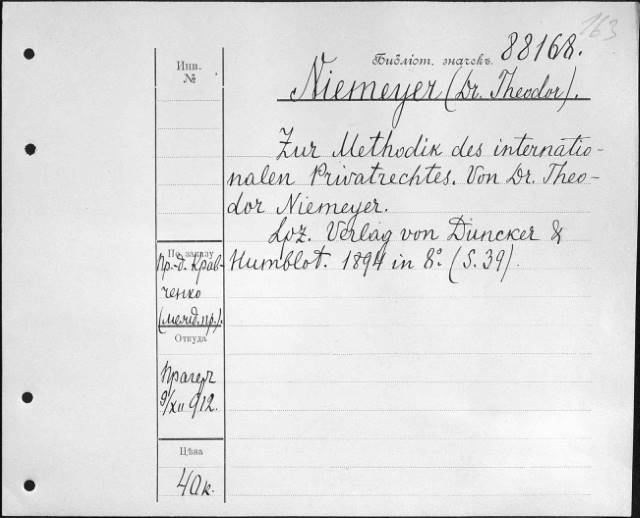 163
Библіот. значекъ. 88168.
Инв.
№
Niemeyer (Dr. Theodor).
Zur Methodik des internatio-
nalen Privatrechtes. Von Dr. Theo-
dor Niemeyer.
Lpz. Verlag von Duncker &
Humblot. 1894 in 8º (S. 39).
По заказу
Пр.-д. Крав-
ченко
(межд. пр.).
Откуда
Прагеръ
9/XII 912.
Цѣна
40 к.